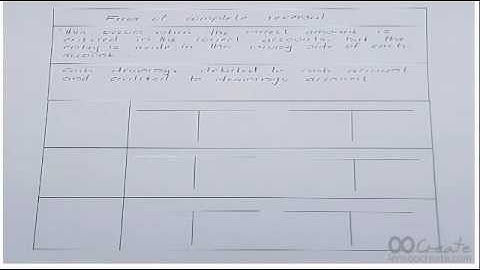 Error of complete reversal
This occurs when the correct amount is
entered in the correct accounts, but the
entry is made in the wrong side of each
account.
Cash drawings debited to cash account
and credited to drawings account
Create